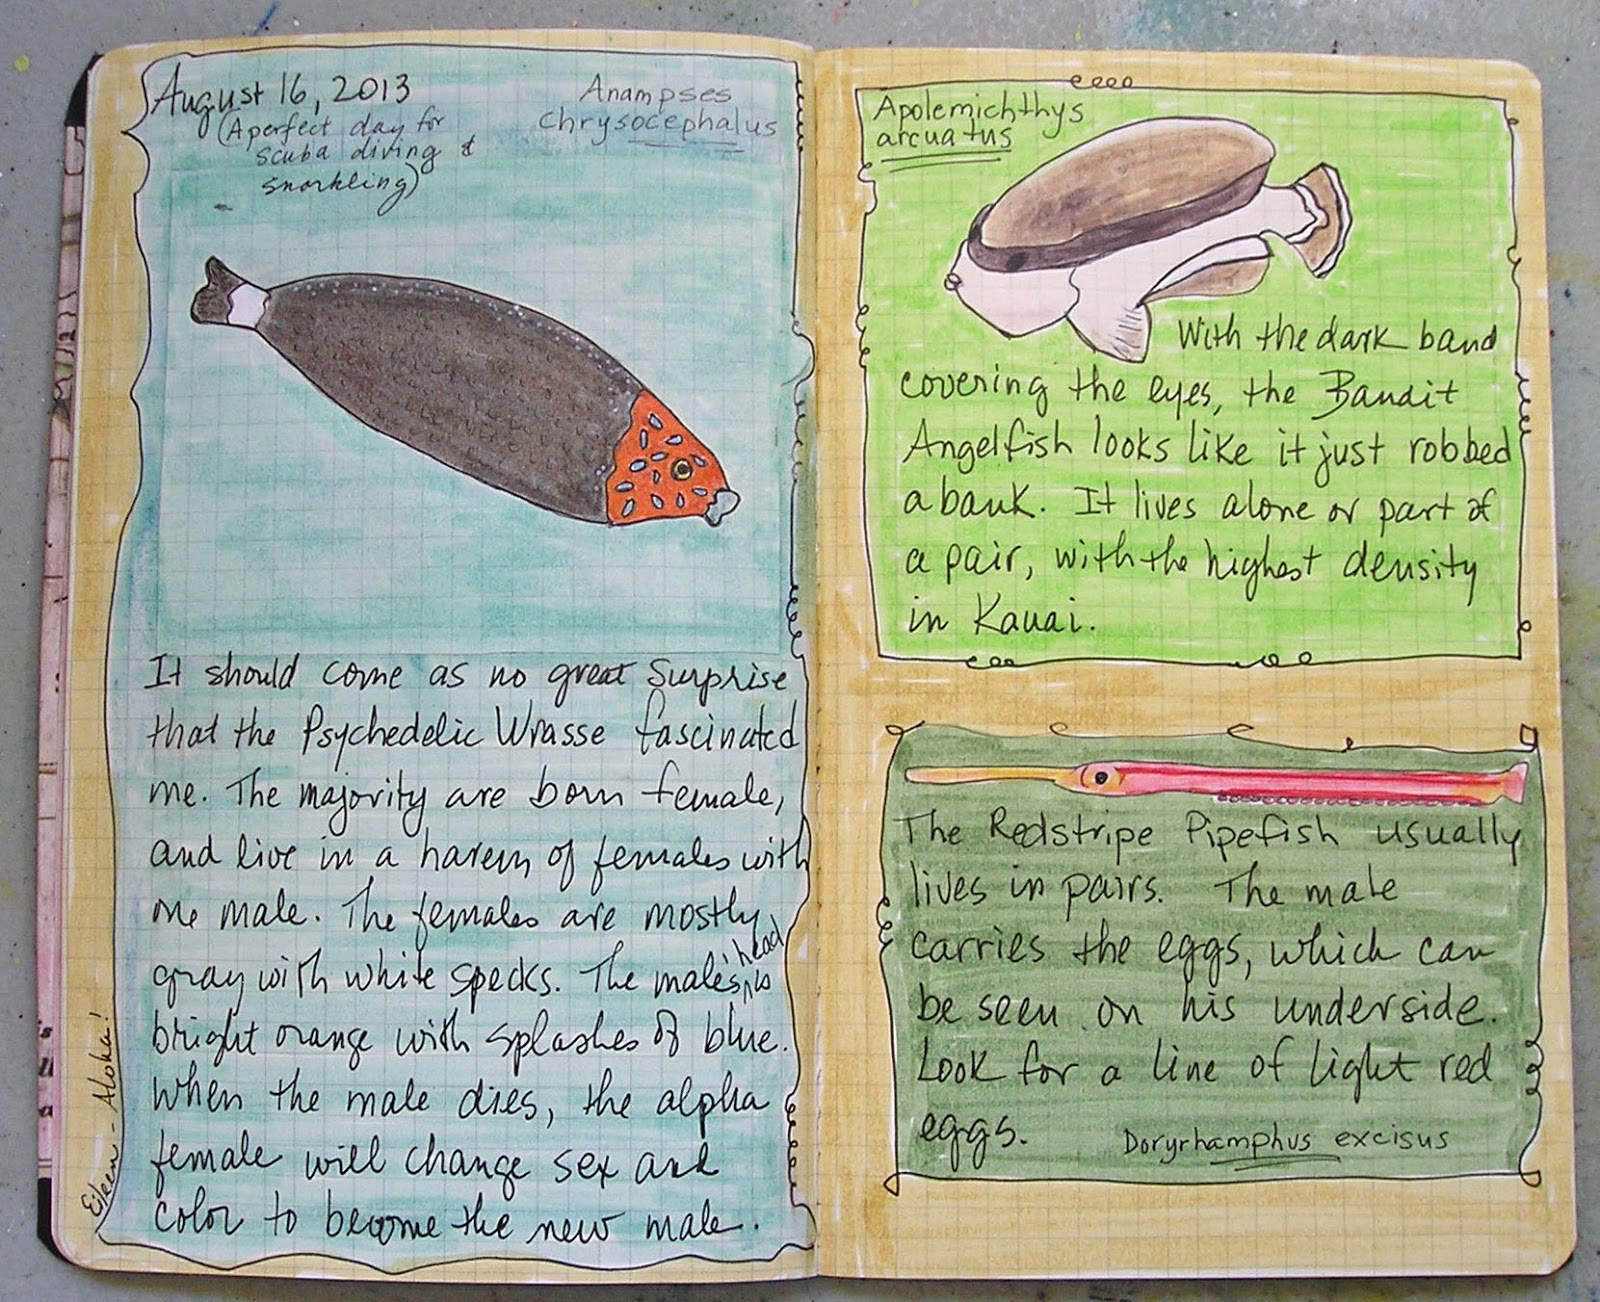 August 16, 2013
(A perfect day for
scuba diving &
snorkling)
Anampses
chrysocephalus
It should come as no great surprise
that the Psychedelic Wrasse fascinated
me. The majority are born female,
and live in a harem of females with
one male. The females are mostly
gray with white specks. The male's head is
bright orange with splashes of blue.
When the male dies, the alpha
female will change sex and
color to become the new male.
Eileen - Aloha!
Apolemichthys
arcuatus
With the dark band
covering the eyes, the Bandit
Angelfish looks like it just robbed
a bank. It lives alone or part of
a pair, with the highest density
in Kauai.
The Redstripe Pipefish usually
lives in pairs. The male
carries the eggs, which can
be seen on his underside.
Look for a line of light red
eggs.
Doryrhamphus excisus